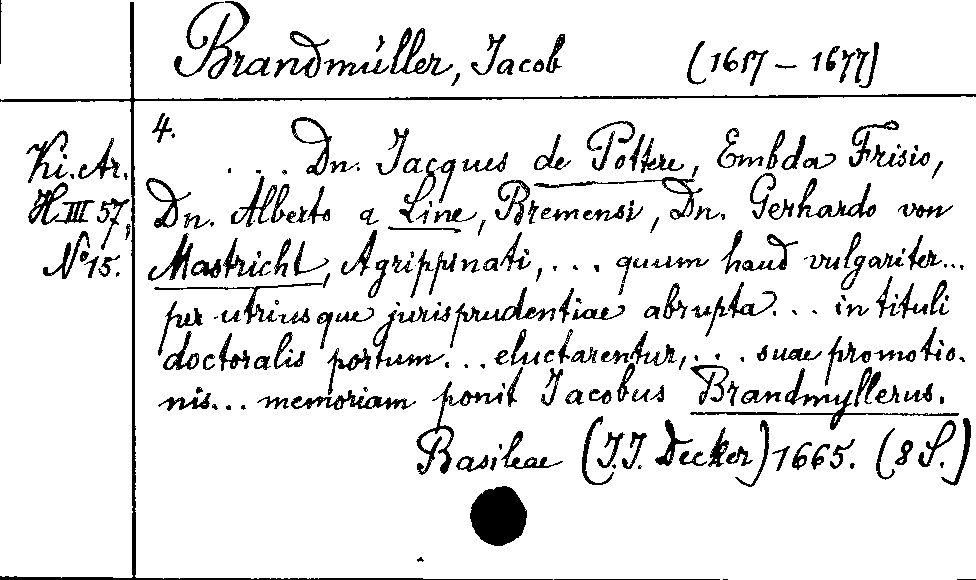 Brandmüller, Jacob (1617 – 1677)
Ki. Ar.
H III 57,
No 15.
4.
... Dn. Jacques de Pottere, Embda Frisio,
Dn. Alberto a Line, Bremensi, Dn. Gerhardo von
Mastricht, Agrippinati, ... quum haud vulgariter...
per utriusque jurisprudentiae abrupta... in tituli
doctoralis portum... eluctarentur, ... suae promotio-
nis... memoriam ponit Jacobus Brandmyllerus.
Basileae (J.J. Decker) 1665. (8 S.)